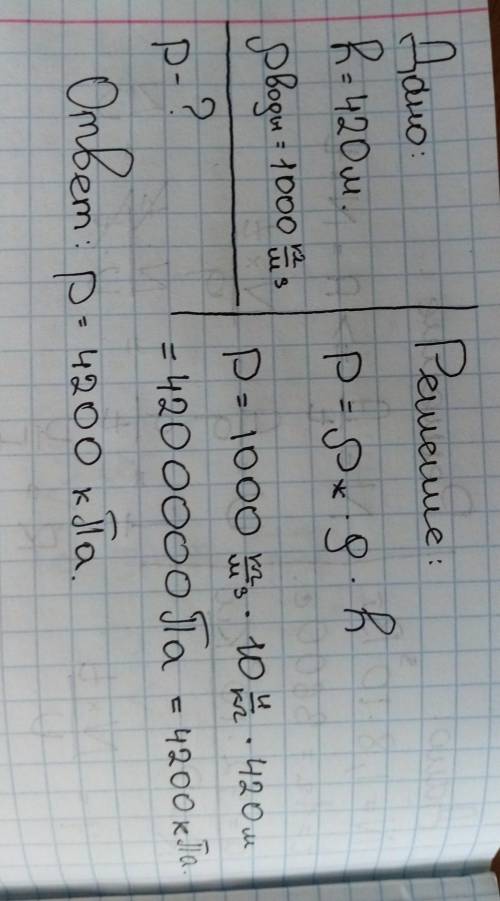 Дано:
h = 420 м.
ρ воды = 1000 кг/м³
p - ?
Решение:
p = ρж · g · h
p = 1000 кг/м³ · 10 н/кг · 420 м
= 4200000 Па = 4200 кПа.
Ответ: p = 4200 кПа.